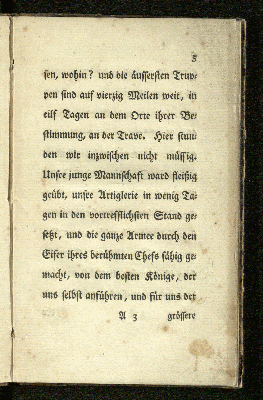 5
sen, wohin? und die äussersten Trup-
pen sind auf vierzig Meilen weit, in
eilf Tagen an dem Orte ihrer Be-
stimmung, an der Trave. Hier stun-
den wir inzwischen nicht müssig.
Unsre junge Mannschaft ward fleißig
geübt, unsre Artiglerie in wenig Ta-
gen in den vortrefflichsten Stand ge-
setzt, und die ganze Armee durch den
Eifer ihres berühmten Chefs fähig ge-
macht, von dem besten Könige, der
uns selbst anführen, und für uns der
A 3 grössere